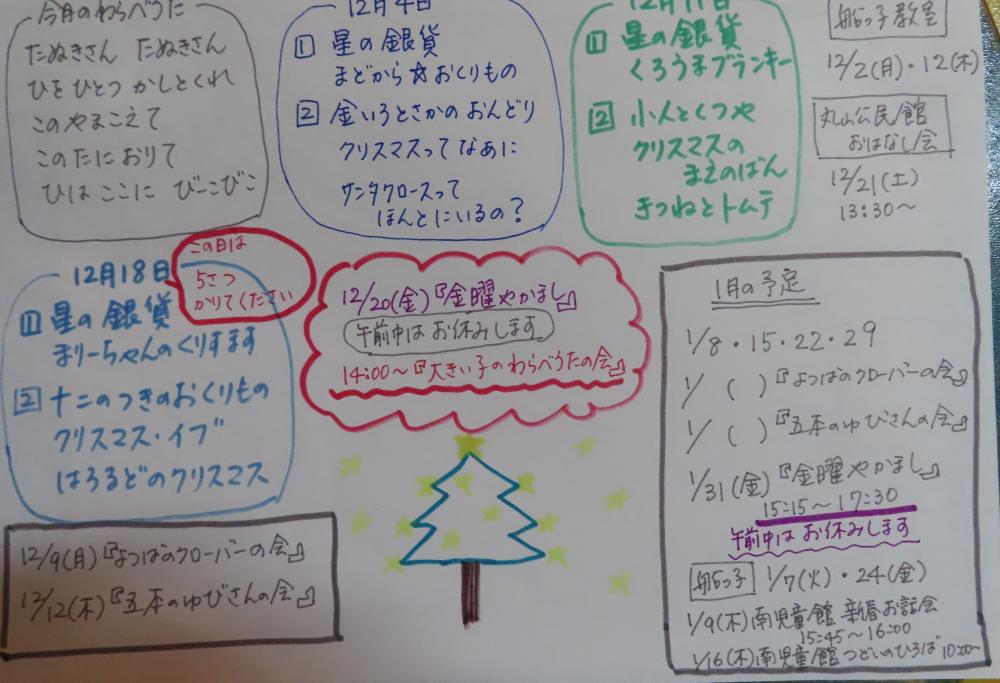 今月のわらべうた
たぬきさん たぬきさん
ひをひとつ かしとくれ
このやまこえて
このたにおりて
ひは ここに びーこびこ
12月4日
1 星の銀貨
まどから☆おくりもの
2 金いろとさかのおんどり
クリスマスってなあに
サンタクロースって
ほんとにいるの?
12月11日
1 星の銀貨
くろうまブランキー
2 小人とくつや
クリスマスの
まえのばん
きつねとトムテ
船っ子教室
12/2(月)・12(木)
丸山公民館
おはなし会
12/21(土)
13:30〜
12月18日
この日は
5さつ
かりてください
1 星の銀貨
まりーちゃんのくりすます
2 十二のつきのおくりもの
クリスマス・イブ
はろるどのクリスマス
12/20(金)『金曜やかまし』
午前中はお休みします
14:00〜『大きい子のわらべうたの会』
12/9(月)『よつばのクローバーの会』
12/12(木)『五本のゆびさんの会』
1月の予定
1/8・15・22・29
1/ ( )『よつばのクローバーの会』
1/ ( )『五本のゆびさんの会』
1/31(金)『金曜やかまし』
15:15〜17:30
午前中はお休みします
船っ子 1/7(火)・24(金)
1/9(木)南児童館 新春お話会
15:45〜16:00
1/16(木)南児童館つどいのひろば 10:00〜